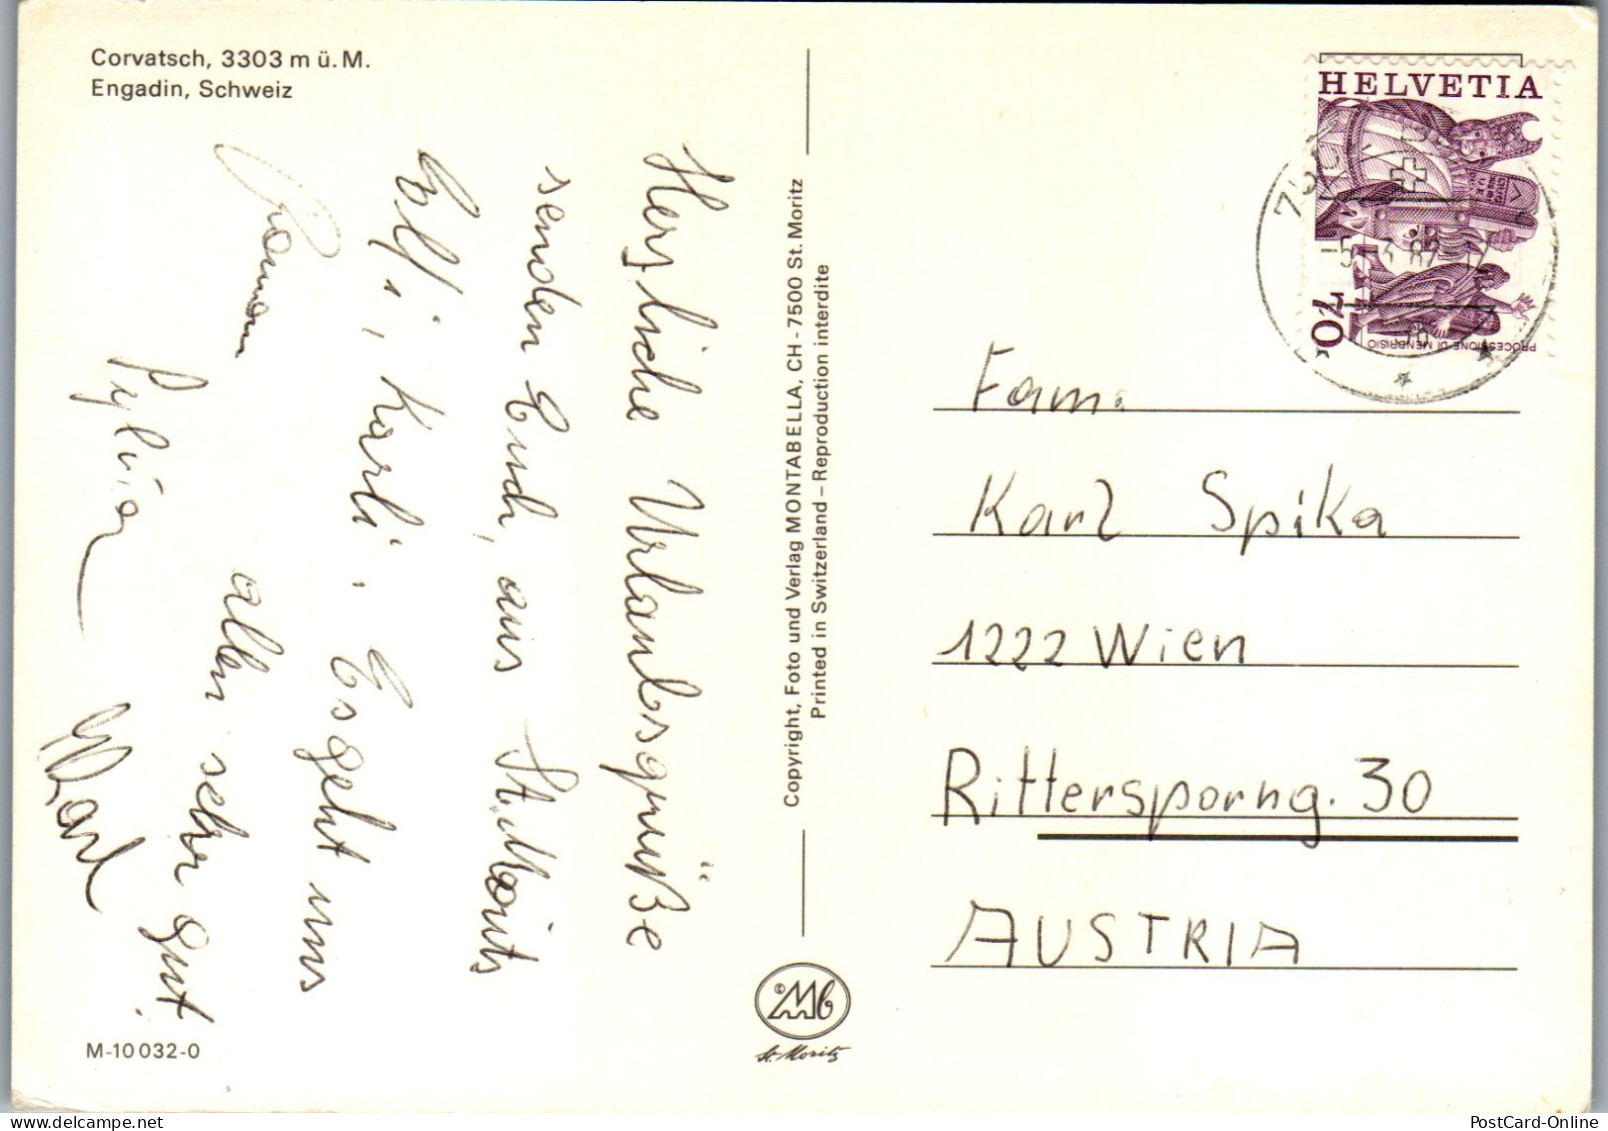 Corvatsch, 3303 m ü. M.
Engadin, Schweiz
Herzliche Urlaubsgrüße
senden Euch, aus St. Moritz
Elfi, Karli. Es geht uns
allen sehr gut.
Roman
Karl
M-10 032-0
Copyright, Foto und Verlag MONTABELLA, CH - 7500 St. Moritz
Printed in Switzerland – Reproduction interdite
© Mb
St. Moritz
HELVETIA
70
PROCESSIONE DI MENDRISIO
-5.-3.82-17
Fam.
Karl Spika
1222 Wien
Rittersporng. 30
AUSTRIA
PostCard-Online